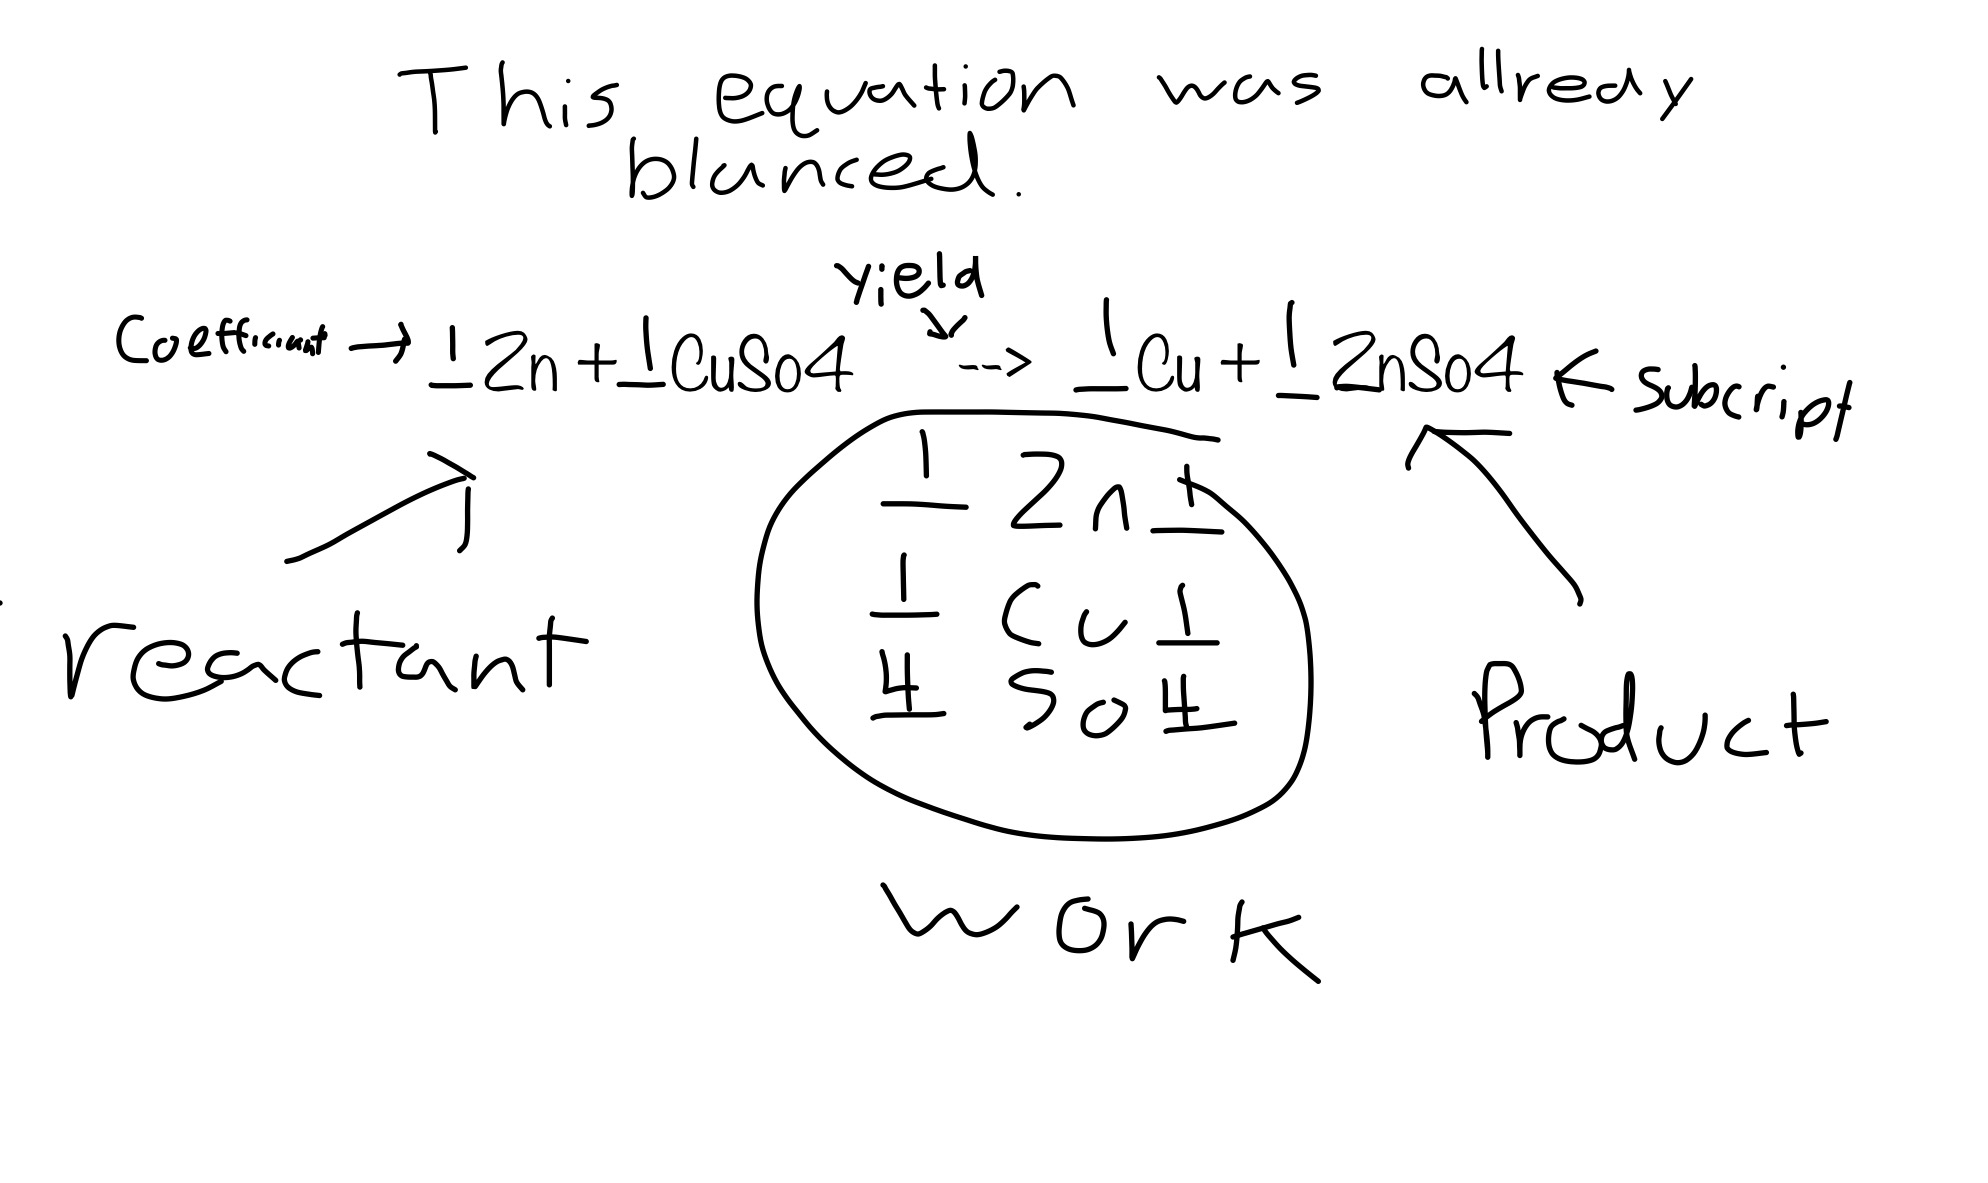 This equation was allready
blanced.
yield
Coefficient → 1 Zn + 1 CuSo4 --> 1 Cu + 1 ZnSo4 ← Subcript
1 Zn 1
1 Cu 1
4 So 4
reactant
Product
work